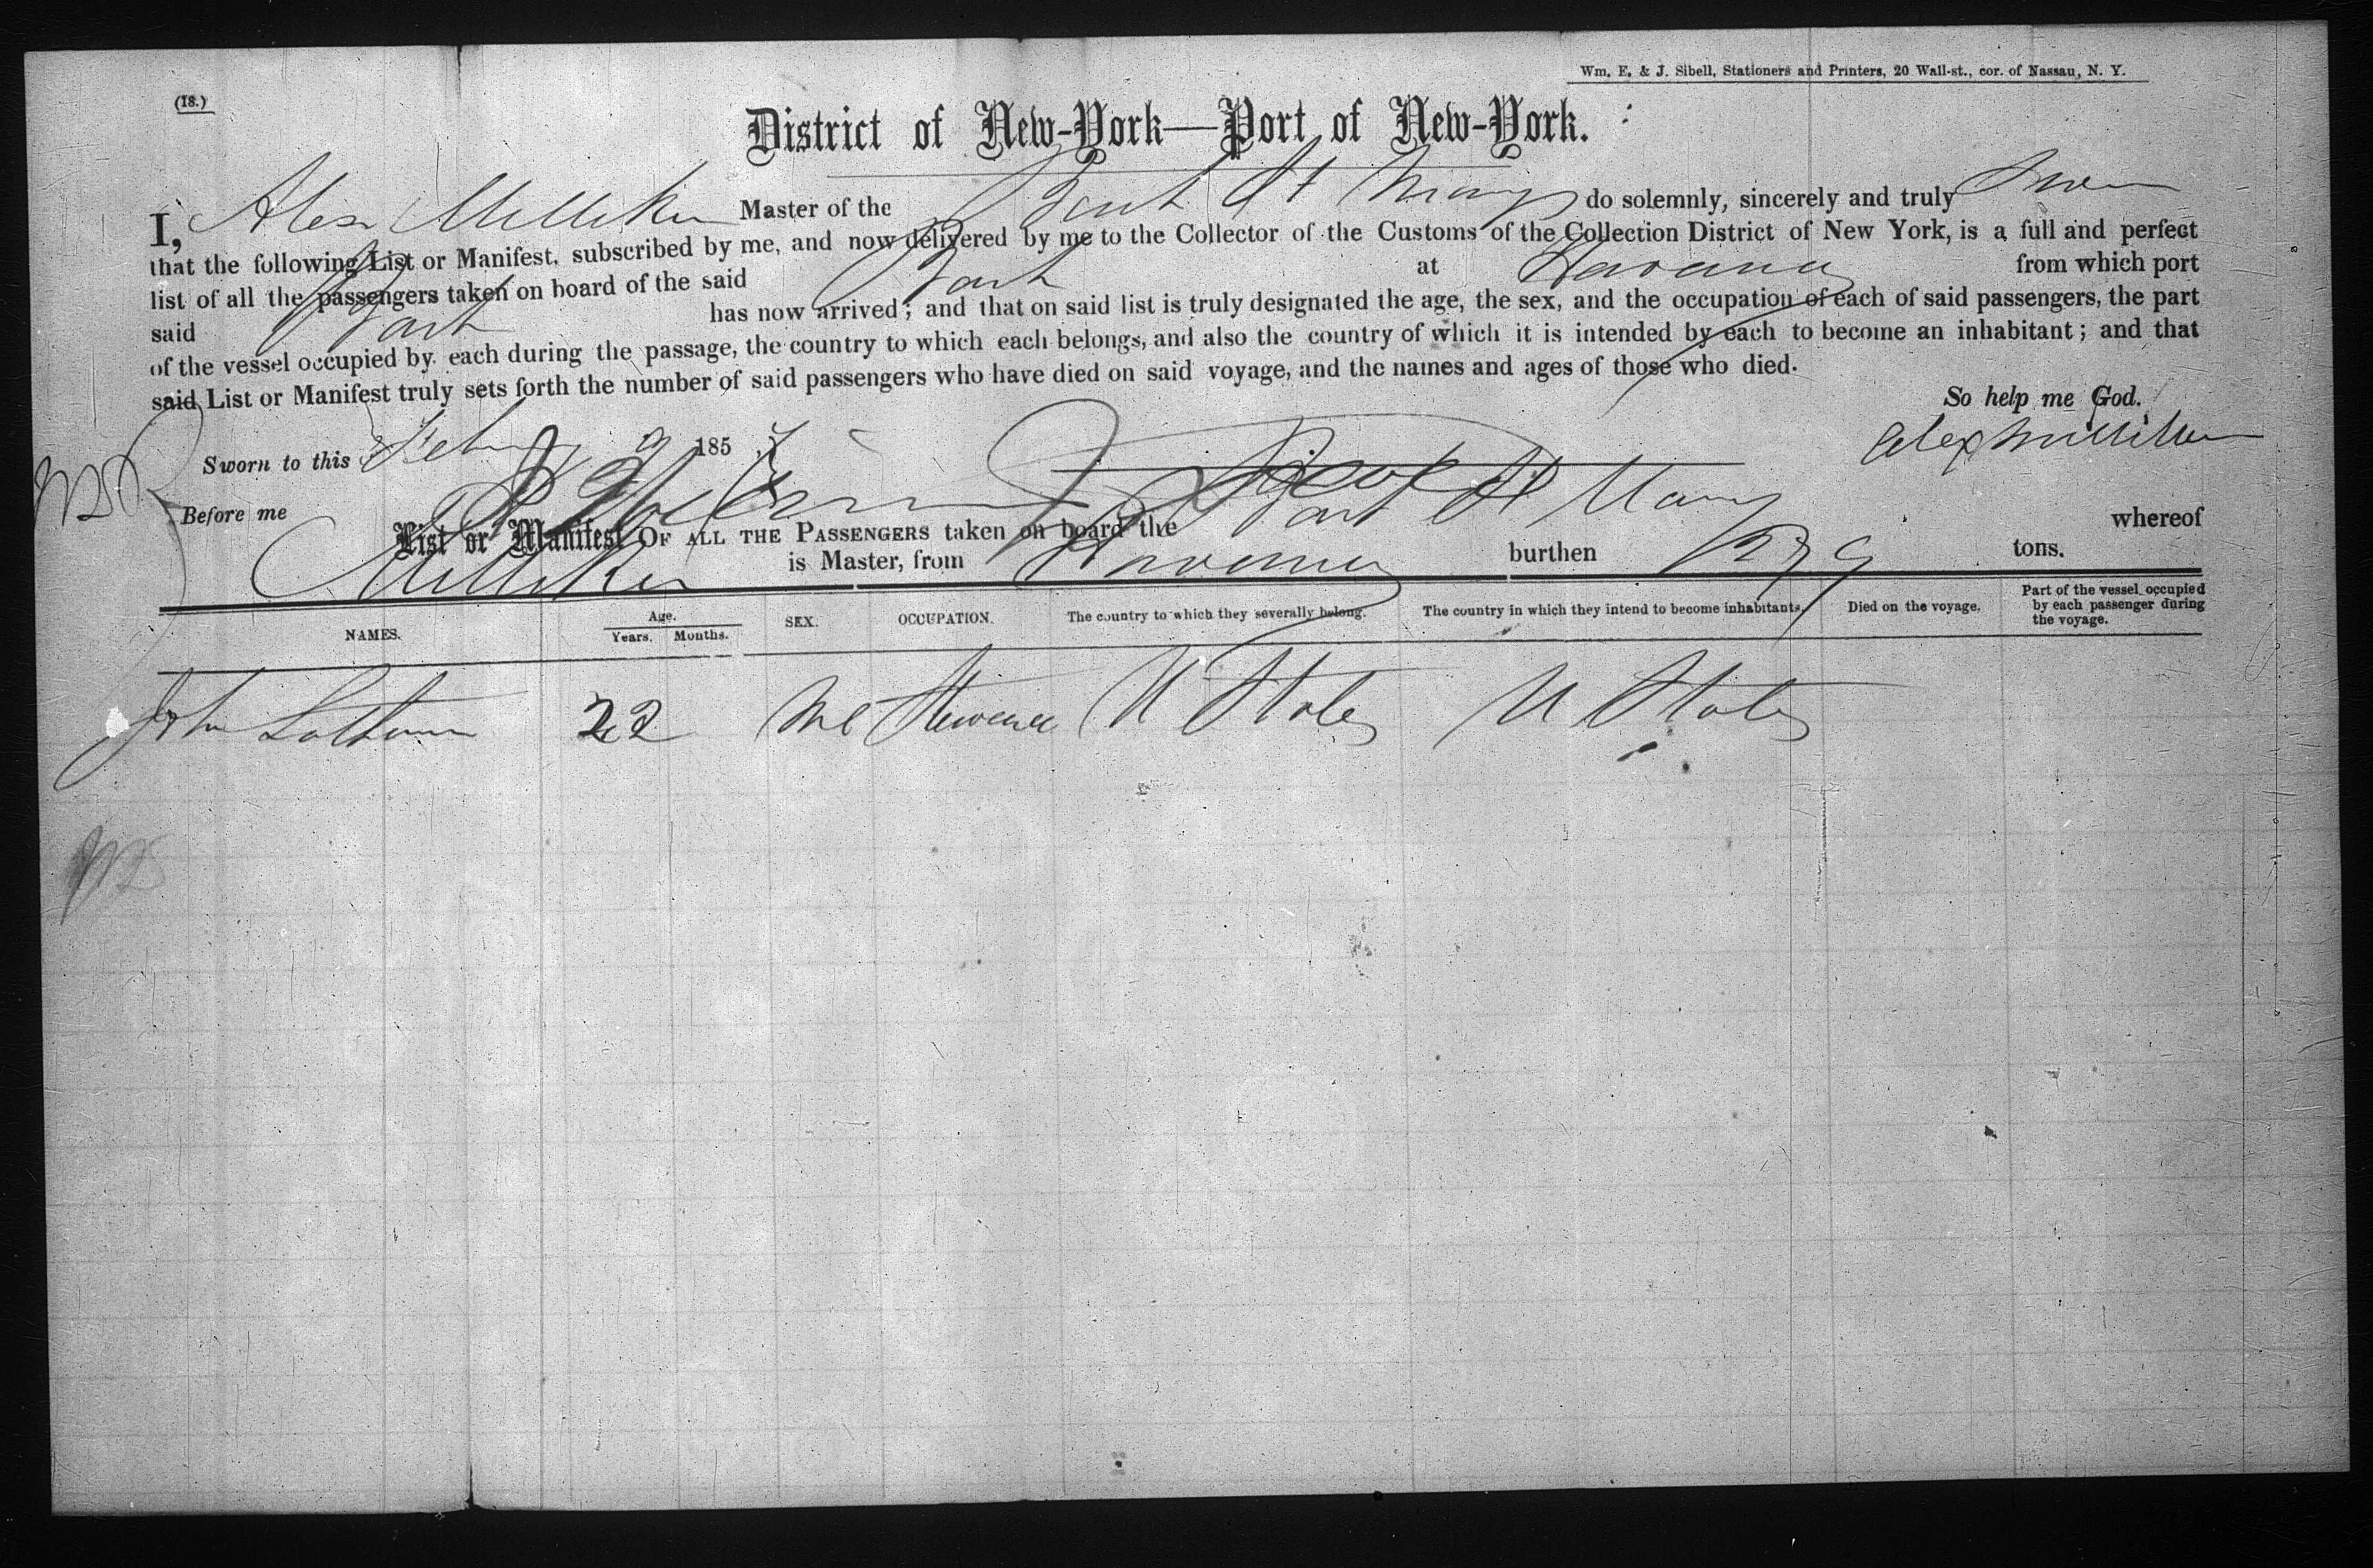 Wm. E. & J. Sibell, Stationers and Printers, 20 Wall-st., cor. of Nassau, N. Y.
(18.)
District of New-York—Port of New-York.
I, Alex Milliken Master of the Bark St Marys do solemnly, sincerely and truly Swear
that the following List or Manifest, subscribed by me, and now delivered by me to the Collector of the Customs of the Collection District of New York, is a full and perfect
list of all the passengers taken on board of the said Bark at Havana from which port
said Bark has now arrived; and that on said list is truly designated the age, the sex, and the occupation of each of said passengers, the part
of the vessel occupied by each during the passage, the country to which each belongs, and also the country of which it is intended by each to become an inhabitant; and that
said List or Manifest truly sets forth the number of said passengers who have died on said voyage, and the names and ages of those who died.
So help me God.
Sworn to this Feby 9 1857
Alex Milliken
Before me
List or Manifest OF ALL THE PASSENGERS taken on board the Bark St Marys whereof
Milliken is Master, from Havana burthen tons.
NAMES. Age. Years. Months. SEX. OCCUPATION. The country to which they severally belong. The country in which they intend to become inhabitants. Died on the voyage. Part of the vessel occupied by each passenger during the voyage.
John 22 U States U States